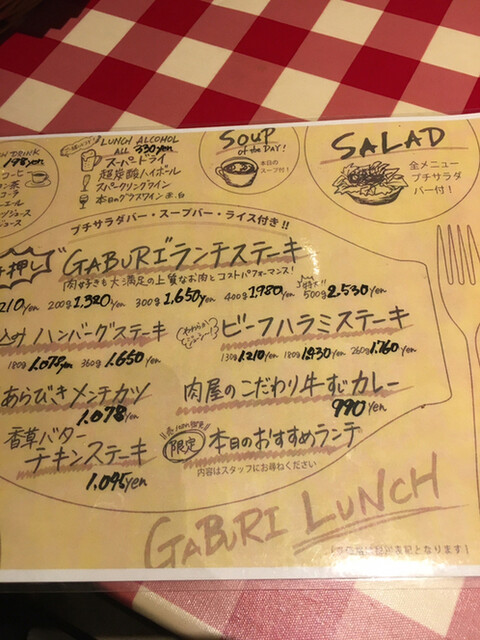 DRINK
198yen
LUNCH ALCOHOL
ALL 330yen
スーパードライ
超炭酸ハイボール
スパークリングワイン
本日のグラスワイン 赤、白
SOUP
of the DAY!
本日の
スープ付!
SALAD
全メニュー
プチサラダ
バー付!
プチサラダバー・スープバー・ライス付き!!
押し
GABURI"ランチステーキ
肉好きも大満足の上質なお肉とコストパフォーマンス!
210yen 200g 1,320yen 300g 1,650yen 400g 1,980yen 500g 2,530yen
ハンバーグステーキ
180g 1,078yen 360g 1,650yen
ビーフハラミステーキ
130g 1,210yen 180g 1,430yen 260g 1,760yen
あらびきメンチカツ
1,078yen
肉屋のこだわり牛すじカレー
990yen
香草バター
チキンステーキ
1,095yen
限定
本日のおすすめランチ
内容はスタッフにお尋ねください
GABURI LUNCH
表記となります!